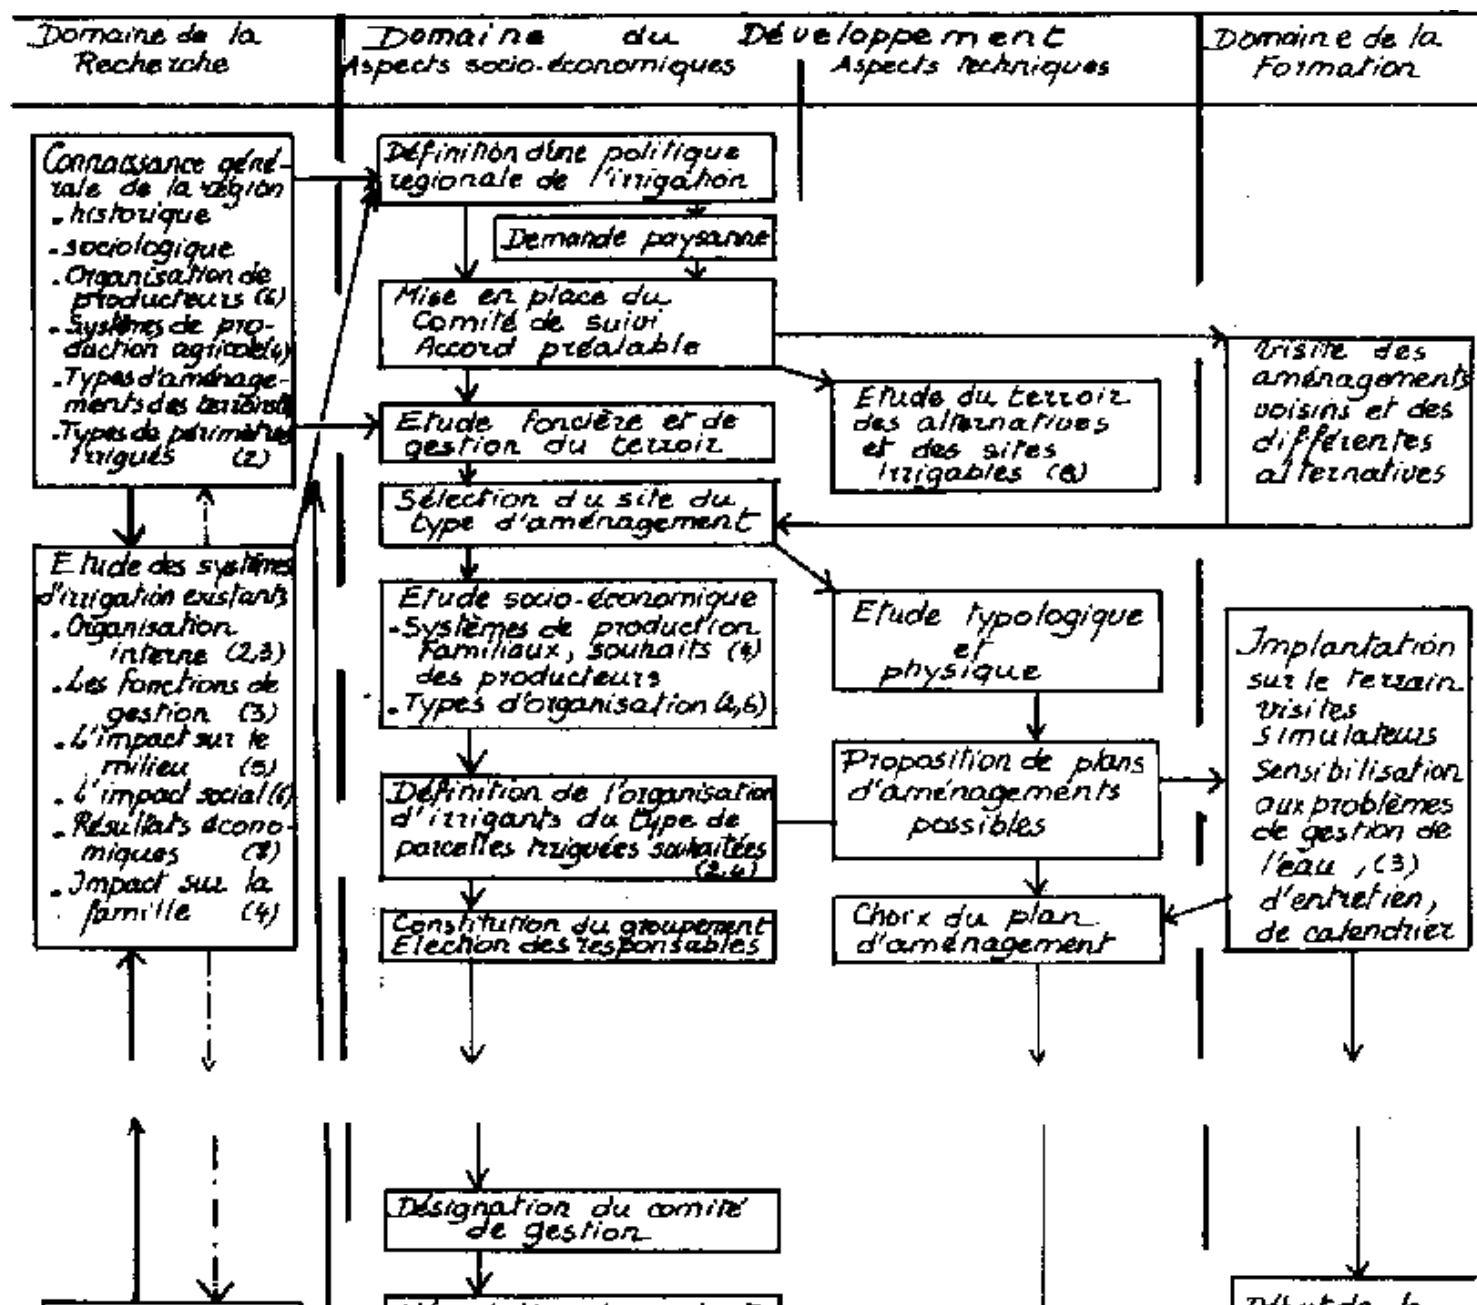 Domaine de la
Recherche
Domaine du Développement
Aspects socio-économiques
Aspects techniques
Domaine de la
Formation
Connaissance géné-
rale de la région
. historique
. sociologique
. Organisation de
producteurs (6)
. Systèmes de pro-
duction agricole (4)
. Types d'aménage-
ments des
. Types de périmètres
irrigués (2)
Etude des systèmes
d'irrigation existants
. Organisation
interne (2,3)
. Les fonctions de
gestion (3)
. L'impact sur le
milieu (5)
. L'impact social
. Résultats écono-
miques
. Impact sur la
famille (4)
Définition d'une politique
régionale de l'irrigation
Demande paysanne
Mise en place du
Comité de suivi
Accord préalable
Etude foncière et de
gestion du terroir
Sélection du site du
type d'aménagement
Etude socio-économique
. Systèmes de production
Familiaux, souhaits (4)
des producteurs
. Types d'organisation (2,6)
Définition de l'organisation
d'irrigants du type de
parcelles irriguées souhaitées
(2,4)
Constitution du groupement
Election des responsables
Désignation du comité
de gestion
Etude du terroir
des alternatives
et des sites
Irrigables
Etude typologique
et
physique
Proposition de plans
d'aménagements
possibles
Choix du plan
d'aménagement
Visite des
aménagements
voisins et des
différentes
alternatives
Implantation
sur le terrain
visites
simulateurs
Sensibilisation
aux problèmes
de gestion de
l'eau, (3)
d'entretien,
de calendrier